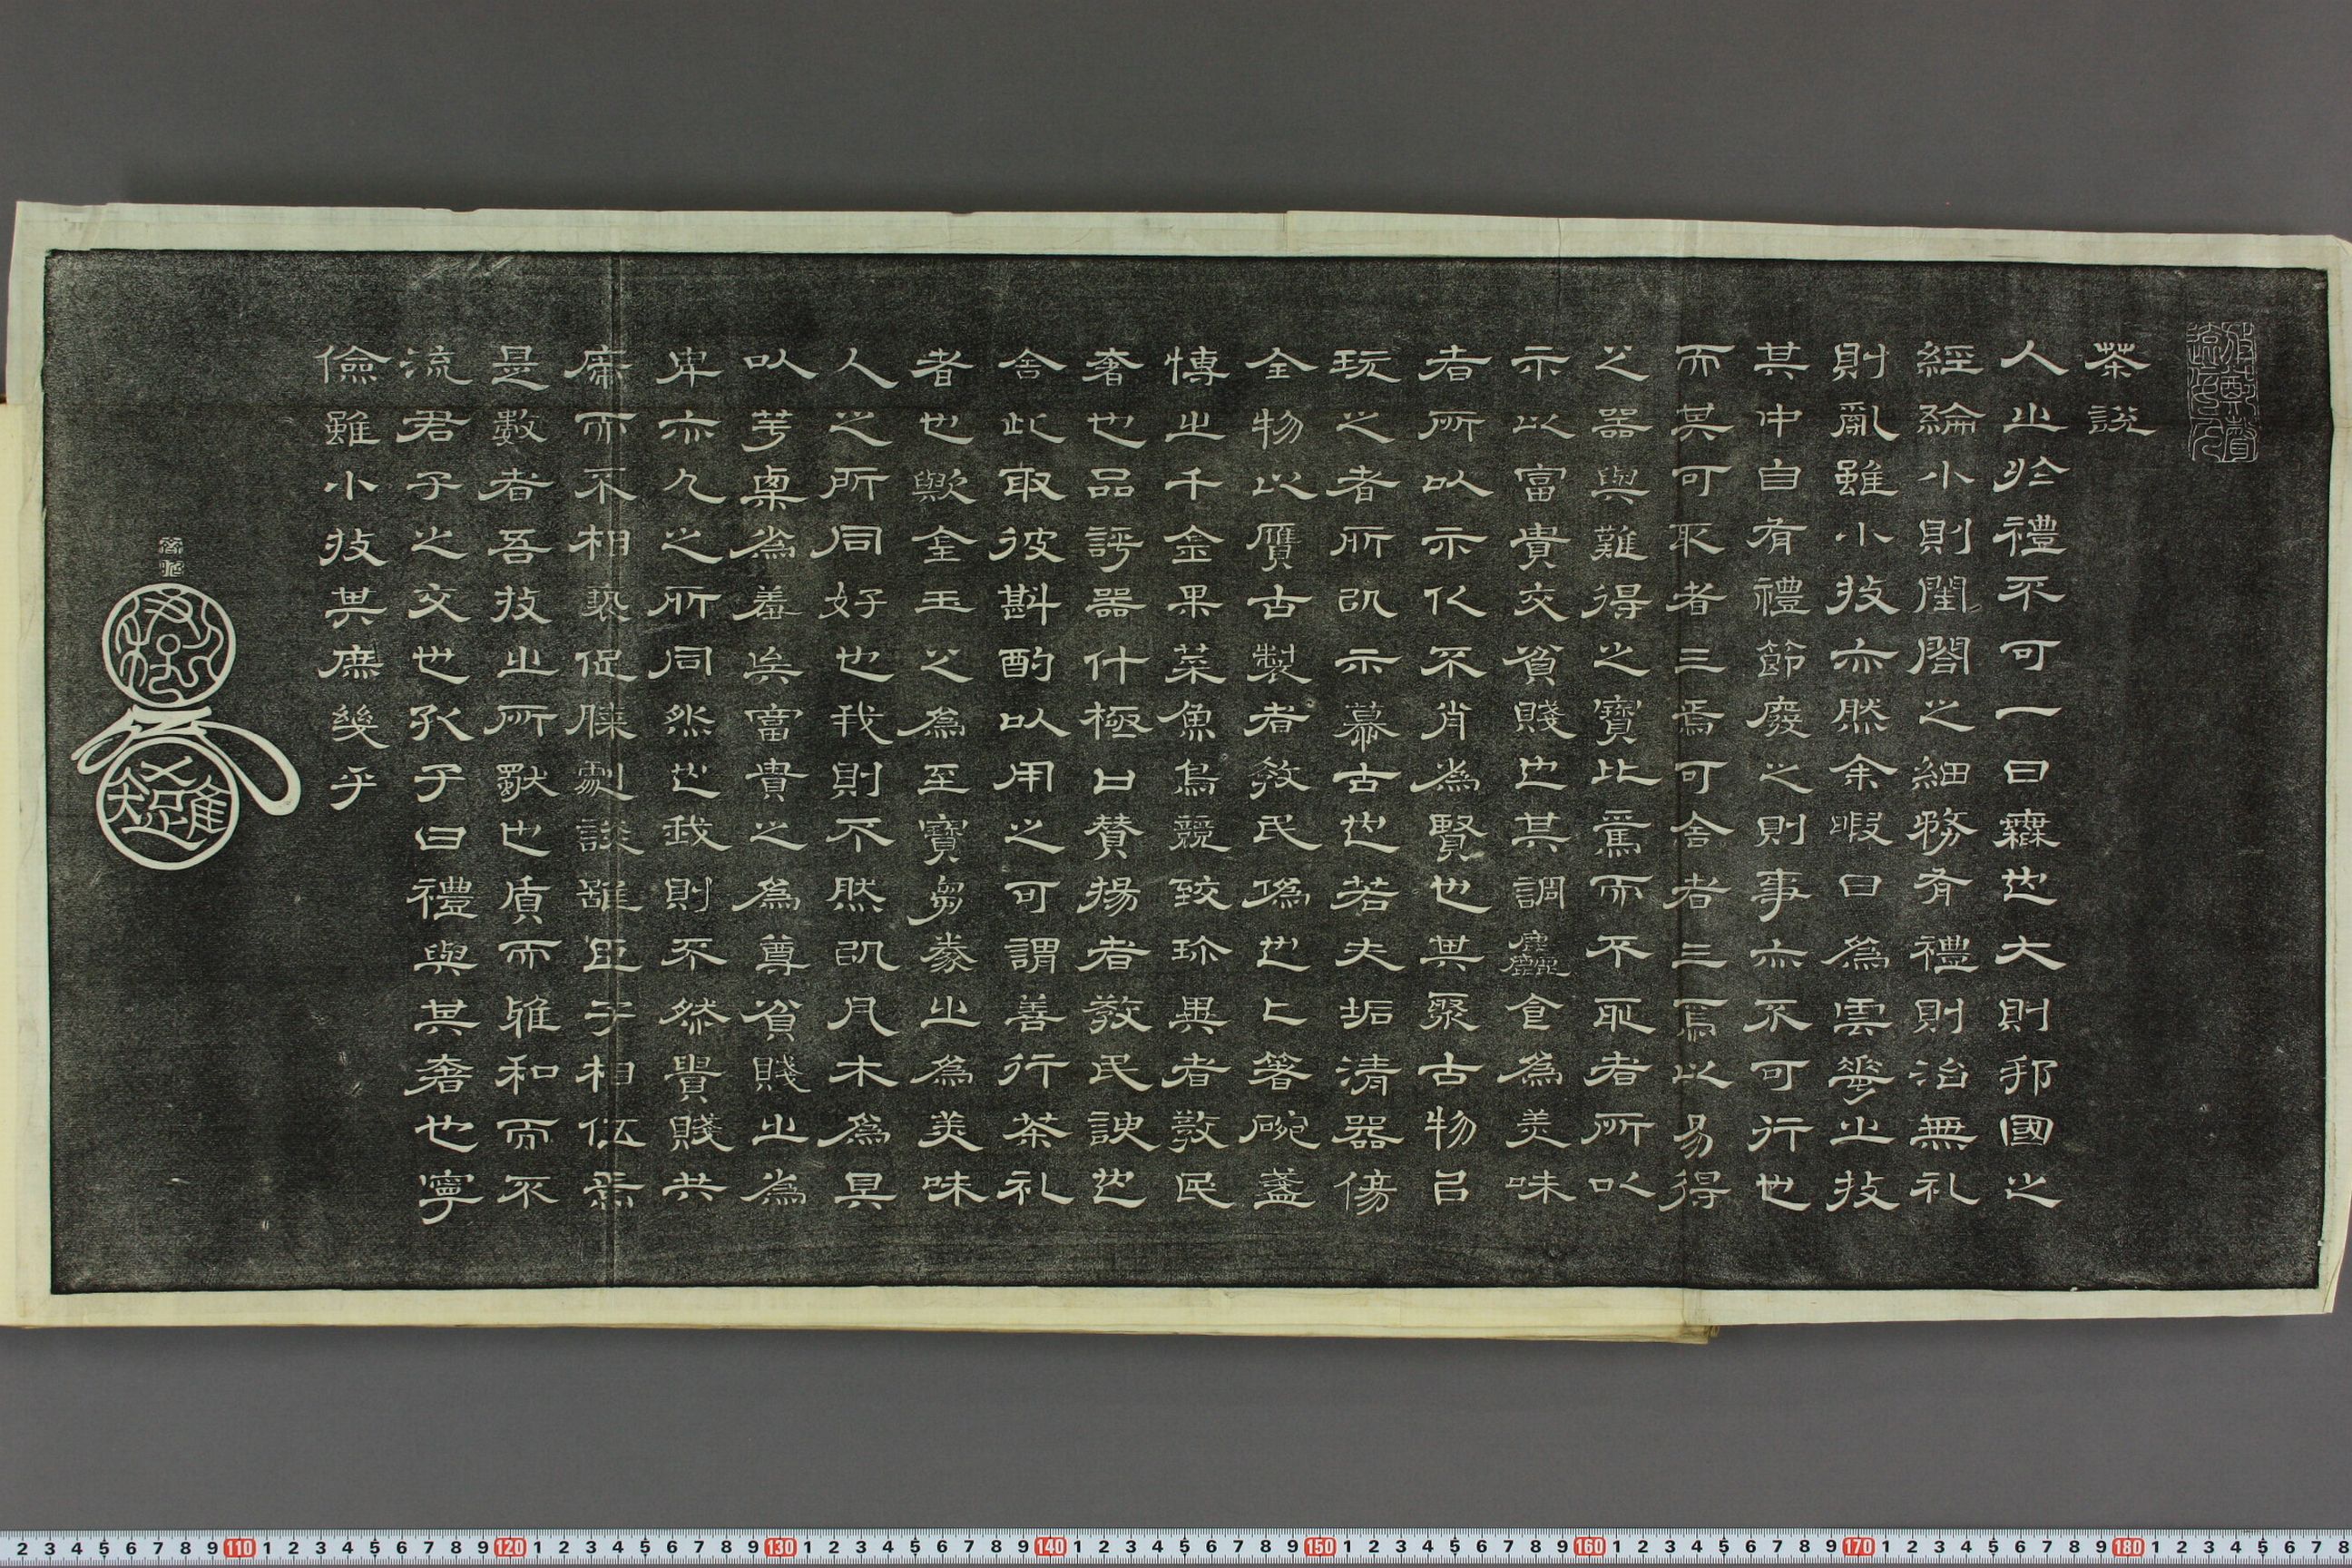 茶說
人之於禮不可一日蘼也大則邦國之
經綸小則閨閤之細務有禮則治無礼
則亂雖小技亦然余暇日為雲華之技
其中自有禮節廢之則事亦不可行也
而其可取者三焉可舍者三焉以易得
之器與難得之寶比焉而不恥者所以
示以富貴交貧賤也其調麤食為美味
者所以示化不肖為賢也其聚古物以
玩之者所以示慕古也若夫垢清器傷
全物以贋古製者教民偽也匕箸碗盞
慱之千金果菜魚鳥競致珍異者教民
奢也品評器什極口賛揚者教民諛也
舍此取彼斟酌以用之可謂善行茶礼
者也歟金玉之為至寶芻豢之為美味
人之所同好也我則不然以凡木為具
以芋栗為羞矣富貴之為尊貧賤之為
卑亦人之所同然也我則不然貴賤共
席而不相褻促膝劇談雖臣子相伍焉
是數者吾技之所獸也質而雅和而不
流君子之交也孔子曰禮與其奢也寧
儉雖小技其庶幾乎